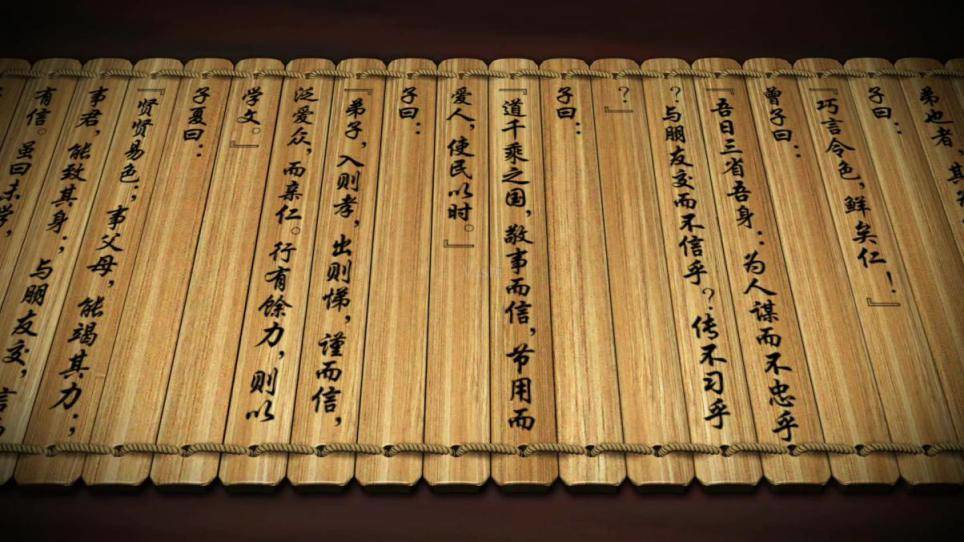 弟也者、其
子曰：
『巧言令色，鲜矣仁！』
曾子曰：
『吾日三省吾身：为人谋而不忠乎
？与朋友交而不信乎？传不习乎
？』
子曰：
『道千乘之国，敬事而信，节用而
爱人，使民以时。』
子曰：
『弟子，入则孝，出则悌，谨而信，
泛爱众，而亲仁。行有馀力，则以
学文。』
子夏曰：
『贤贤易色；事父母，能竭其力；
事君，能致其身；与朋友交，言
有信。虽曰未学，